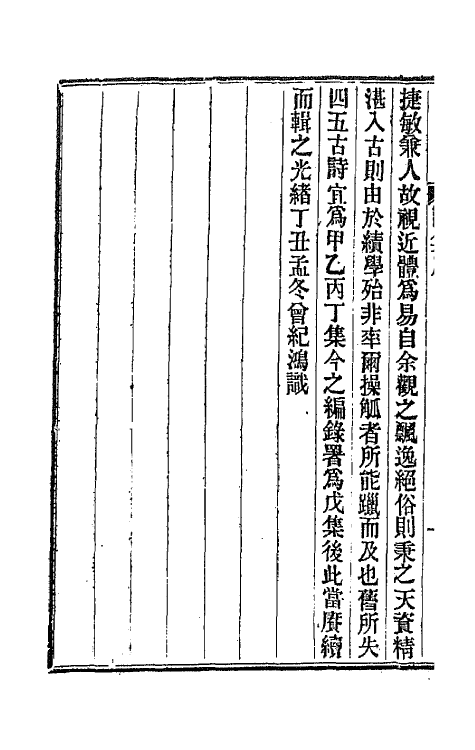 捷敏兼人故視近體為易自余觀之飄逸絕俗則秉之天資精
湛入古則由於績學殆非率爾操觚者所能躐而及也舊所失
四五古詩宜為甲乙丙丁集今之編錄署為戊集後此當賡續
而輯之光緒丁丑孟冬曾紀鴻識